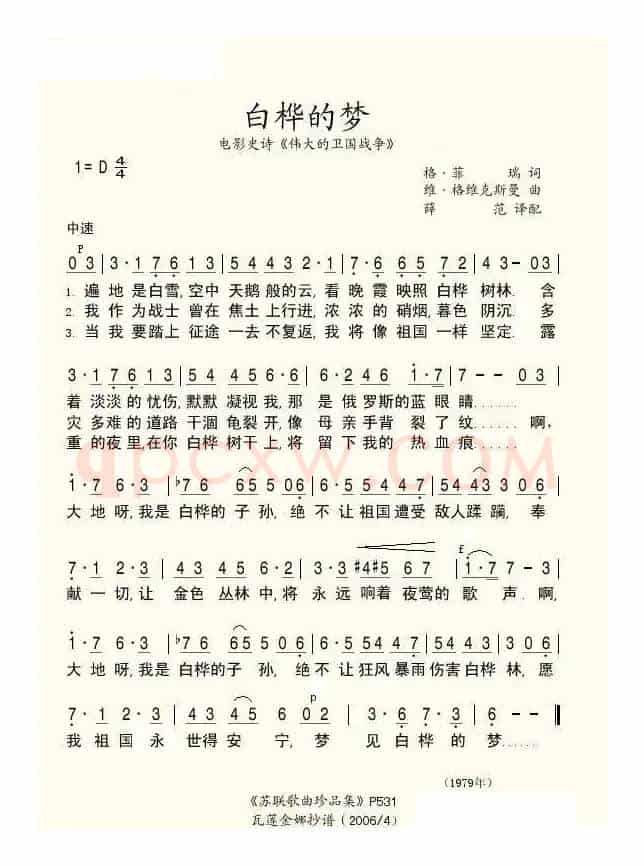 白桦的梦
电影史诗《伟大的卫国战争》
1=D 4/4
格·菲 瑞 词
维·格维克斯曼 曲
薛 范 译配
中速
P
0 3 | 3·1 7 6 1 3 | 5 4 4 0 1 3 | 5 4 4 0 1 7 | 7·6 6 5 7 2 | 4 3 - 0 3 |
1. 遍地是白雪,空中 天鹅般的云,看晚霞映照白桦 树林. 含
2. 我作为战士 曾在 焦土上行进,浓浓的硝烟,暮色 阴沉. 多
3. 当我要踏上 征途 一去不复返,我将像祖国一样 坚定. 露
3·1 7 6 1 3 | 5 4 4 0 4 5 | 6·6 2 4 6 | 1·7 | 7 - - 0 3 |
着 淡淡的 忧伤,默默 凝视我,那 是俄罗斯的蓝眼睛......
灾 多难的 道路 干涸 龟裂开,像 母 亲手背 裂了纹...... 啊,
重 的夜里在你 白桦 树干上,将 留下我的 热血痕......
qpcxw.com
1·7 6·3 | ♭7 6 6 5 5 0 6 | 5·4 5 4 4 7 | 5 4 4 3 3 0 6 |
大地呀,我是 白桦的子孙,绝 不 让祖国遭受 敌人蹂 躏, 奉
7·1 2·3 | 4 3 4 5 6·2 | 3 ♯4♯5 6 7 | f 1·7 7 3 0 6 |
献一切,让 金色 丛林中,将永远响着 夜莺的 歌 声. 啊,
1·7 6·3 | ♭7 6 6 5 5 0 6 | 5·4 5 4 4 7 | 5 4 4 3 3 0 6 |
大地呀,我是白桦的子 孙, 绝 不让狂风 暴雨伤害 白桦 林,愿
7·1 2·3 | 4 3 4 5 6 0 2 | p 3·6 7·3 | 6 - - ‖
我 祖国永 世得安 宁,梦 见白桦 的 梦......
(1979年)
《苏联歌曲珍品集》P531
瓦莲金娜抄谱(2006/4)